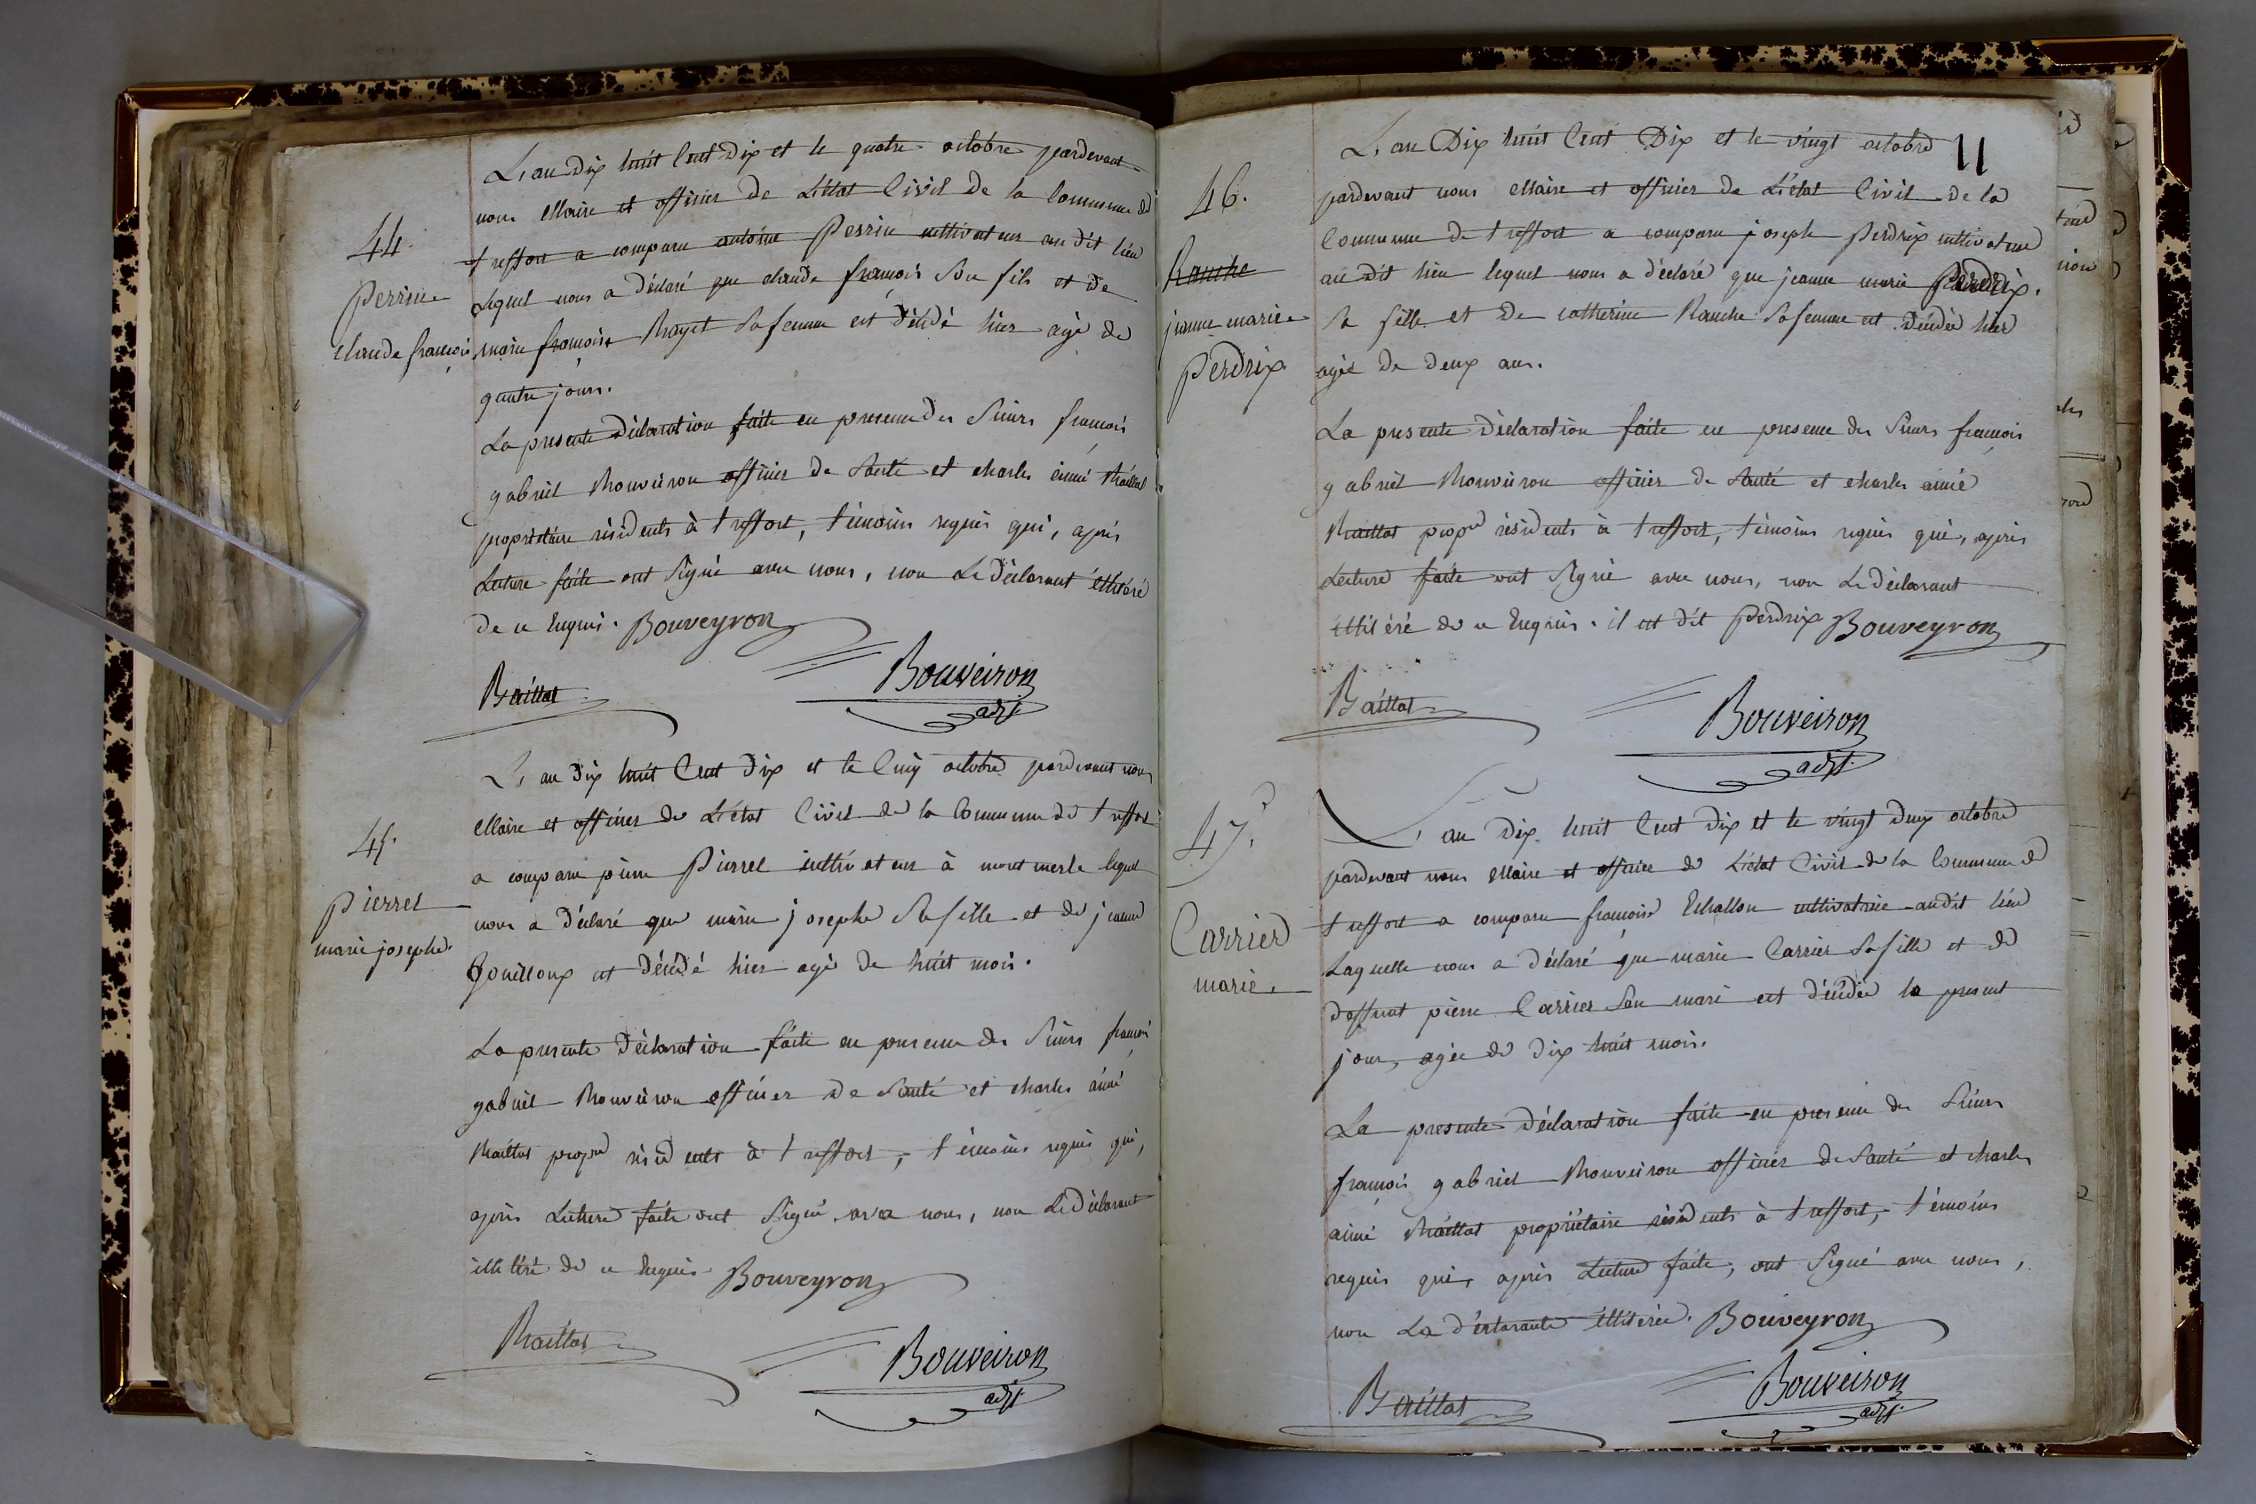 44.
Perrin
claude françois
L'an dix huit Cent dix et le quatre octobre pardevant
nous Maire et officier de L'état Civil de la Commune de
treffort a comparu antoine Perrin cultivateur au dit lieu
Lequel nous a déclaré que claude françois son fils et de
marie françoise Mayet sa femme est décédé hier agé de
quatre jours.
La presente déclaration faite en presence des sieurs françois
gabriel Bouveiron officier de santé et charles aimé Baillat
propriétaire résidents à treffort, témoins requis qui, après
Lecture faite ont signé avec nous, non Le déclarant illitéré
de ce Enquis. Bouveyron
Baillat
Bouveiron
adjt.
45.
Pierrel
marie josephe
L'an dix huit Cent dix et le Cinq octobre pardevant nous
Maire et officier de L'état Civil de la Commune de treffort
a comparu pierre Pierrel cultivateur à montmerle lequel
nous a déclaré que marie josephe sa fille et de jeanne
Gouilloux est décédé hier agé de huit mois.
La presente déclaration faite en presence des sieurs françois
gabriel Bouveiron officier de santé et charles aimé
Baillat propre résidents à treffort, témoins requis qui,
après Lecture faite ont signé avec nous, non Le déclarant
illitéré de ce Enquis. Bouveyron
Baillat
Bouveiron
adjt
11
46.
jeanne marie
Perdrix
L'an Dix huit Cent Dix et le vingt octobre
pardevant nous Maire et officier de L'état Civil de la
Commune de treffort a comparu joseph Perdrix cultivateur
au dit lieu lequel nous a déclaré que jeanne marie Perdrix
sa fille et de catherine Ranche sa femme est décédée hier
agée de deux ans.
La presente déclaration faite en presence des sieurs françois
gabriel Bouveiron officier de santé et charles aimé
Baillat propre résidents à treffort, témoins requis qui, après
Lecture faite ont signé avec nous, non Le déclarant
illitéré de ce Enquis. il est dit Perdrix Bouveyron
Baillat
Bouveiron
adjt.
47.
Carrier
marie
L'an dix huit Cent dix et le vingt deux octobre
pardevant nous Maire et officier de L'état Civil de la Commune de
treffort a comparu françoise Echallon cultivatrice audit lieu
Laquelle nous a déclaré que marie Carrier sa fille et de
deffunt pierre Carrier son mari est décédée le present
jour, agée de dix huit mois.
La presente déclaration faite en presence des sieurs
françois gabriel Bouveiron officier de santé et charles
aimé Baillat propriétaire résidents à treffort, témoins
requis qui, après Lecture faite, ont signé avec nous,
non La déclarante illitérée. Bouveyron
Baillat
Bouveiron
adjt.